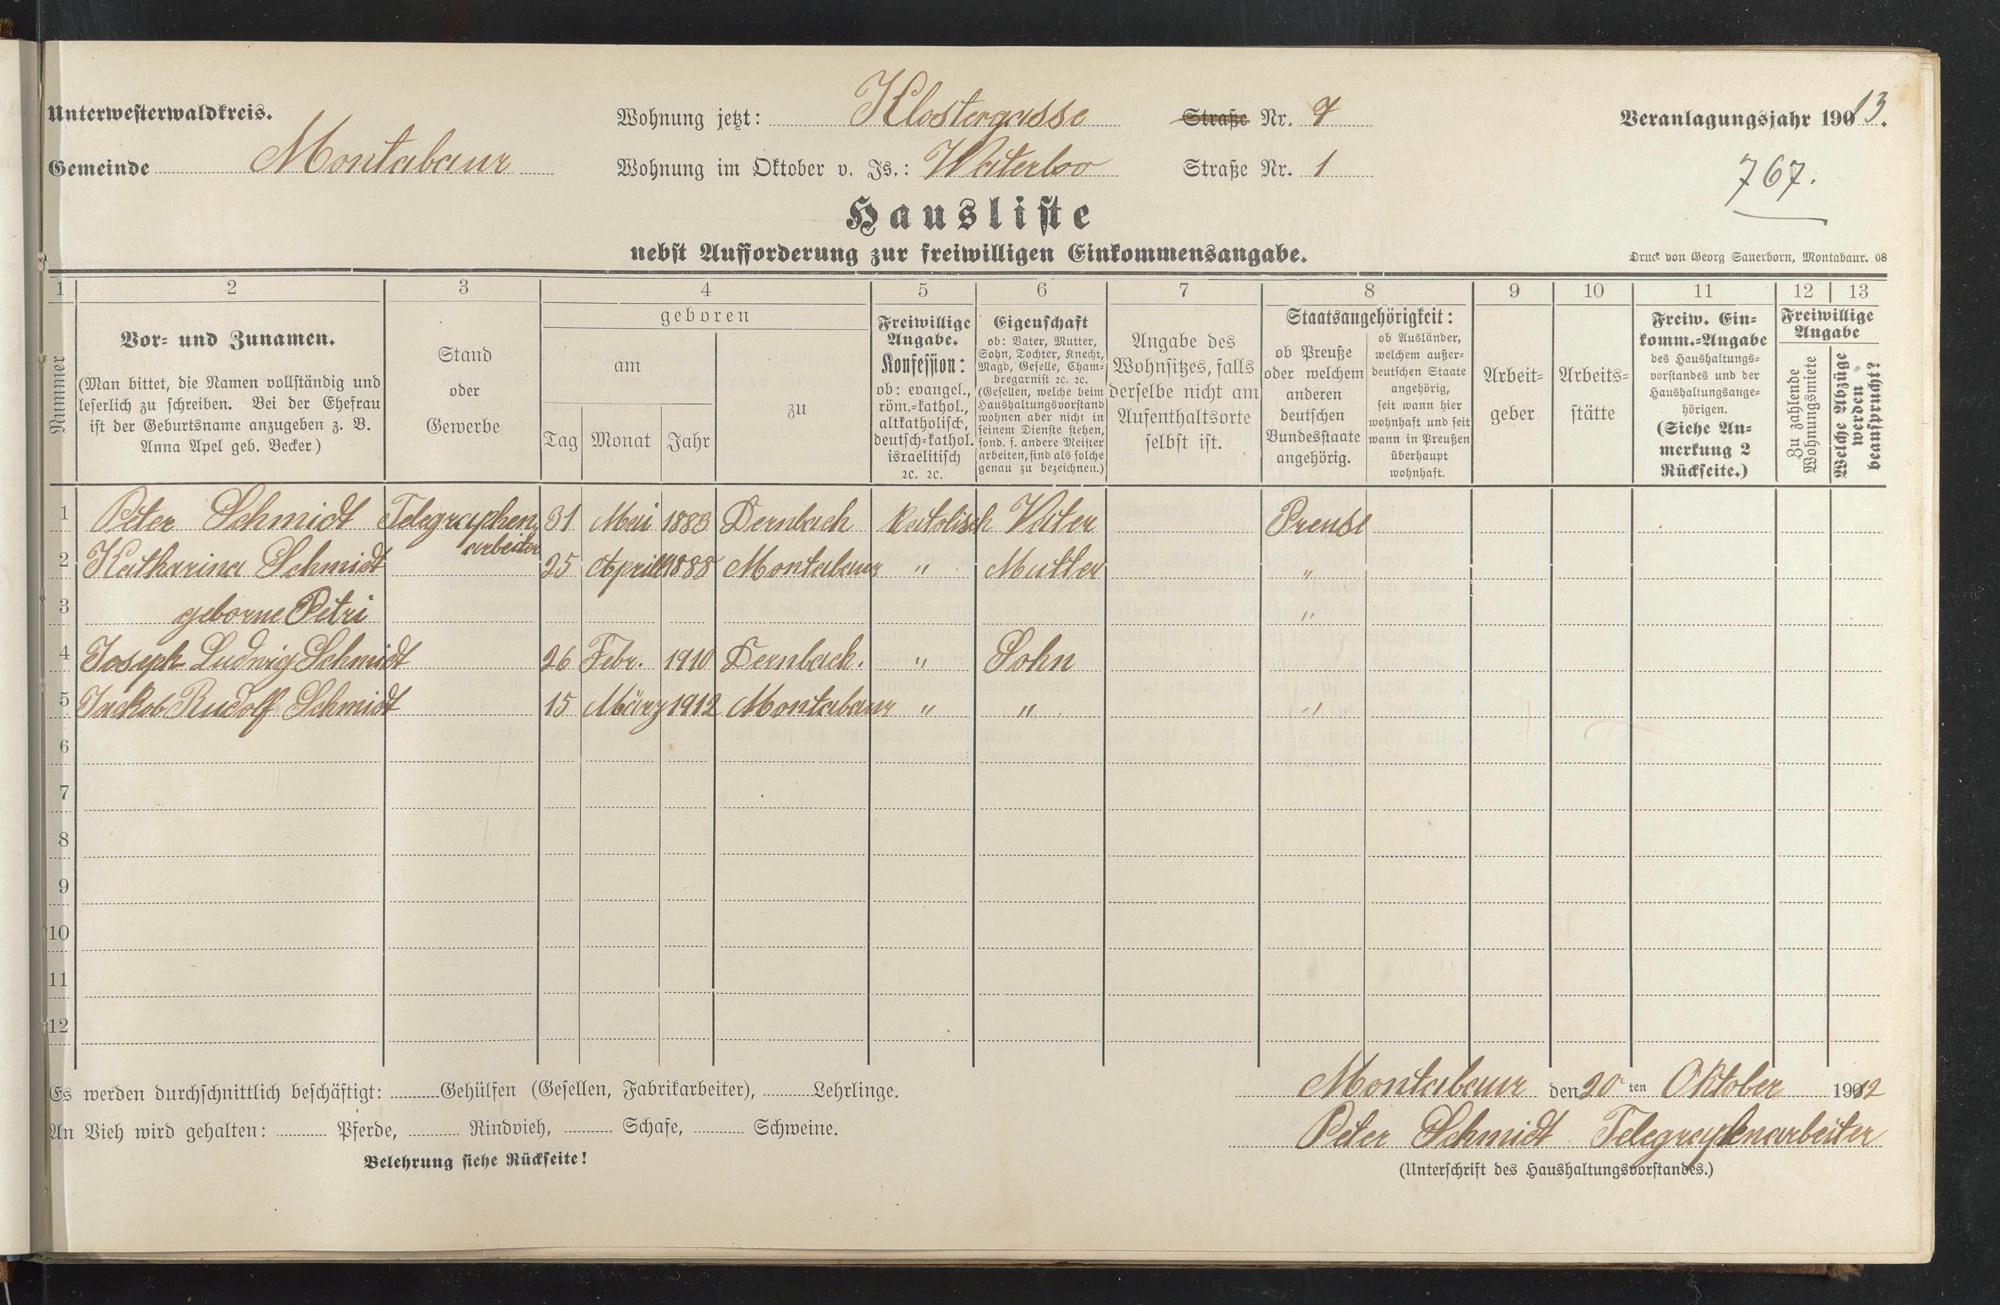 Unterwesterwaldkreis.
Wohnung jetzt: Klostergasse Straße Nr. 7
Veranlagungsjahr 1913.
Gemeinde Montabaur
Wohnung im Oktober v. Js.: Waterloo Straße Nr. 1
767.
Hausliste
nebst Aufforderung zur freiwilligen Einkommensangabe.
Druck von Georg Sauerborn, Montabaur. 08
1 2 3 4 5 6 7 8 9 10 11 12 13
Nummer
Vor- und Zunamen.
(Man bittet, die Namen vollständig und
leserlich zu schreiben. Bei der Ehefrau
ist der Geburtsname anzugeben z. B.
Anna Apel geb. Becker)
Stand
oder
Gewerbe
geboren
am
Tag Monat Jahr
zu
Freiwillige
Angabe.
Konfession:
ob: evangel.,
röm.-kathol.,
altkatholisch,
deutsch-kathol.
israelitisch
ꝛc. ꝛc.
Eigenschaft
ob: Vater, Mutter,
Sohn, Tochter, Knecht,
Magd, Geselle, Cham-
bregarnist ꝛc. ꝛc.
(Gesellen, welche beim
Haushaltungsvorstand
wohnen aber nicht in
seinem Dienste stehen,
sond. f. andere Meister
arbeiten, sind als solche
genau zu bezeichnen.)
Angabe des
Wohnsitzes, falls
derselbe nicht am
Aufenthaltsorte
selbst ist.
Staatsangehörigkeit:
ob Preuße
oder welchem
anderen
deutschen
Bundesstaate
angehörig.
ob Ausländer,
welchem außer-
deutschen Staate
angehörig,
seit wann hier
wohnhaft und seit
wann in Preußen
überhaupt
wohnhaft.
Arbeit-
geber
Arbeits-
stätte
Freiw. Ein-
komm.-Angabe
des Haushaltungs-
vorstandes und der
Haushaltungsange-
hörigen.
(Siehe An-
merkung 2
Rückseite.)
Freiwillige
Angabe
Zu zahlende
Wohnungsmiete
Welche Abzüge
werden
beansprucht?
1 Peter Schmidt Telegraphen, arbeiter 31 Mai 1883 Dernbach katolisch Vater Preuse
2 Katharina Schmidt 25 April 1888 Montabaur " Mutter "
3 geborne Petri "
4 Joseph Ludwig Schmidt 26 Febr. 1910 Dernbach. " Sohn
5 Jackob Rudolf Schmidt 15 März 1912 Montabaur " " "
6
7
8
9
10
11
12
Es werden durchschnittlich beschäftigt: Gehülfen (Gesellen, Fabrikarbeiter), Lehrlinge.
Montabaur den 20 ten Oktober 1912
An Vieh wird gehalten: Pferde, Rindvieh, Schafe, Schweine.
Peter Schmidt Telegraphenarbeiter
Belehrung siehe Rückseite!
(Unterschrift des Haushaltungsvorstandes.)